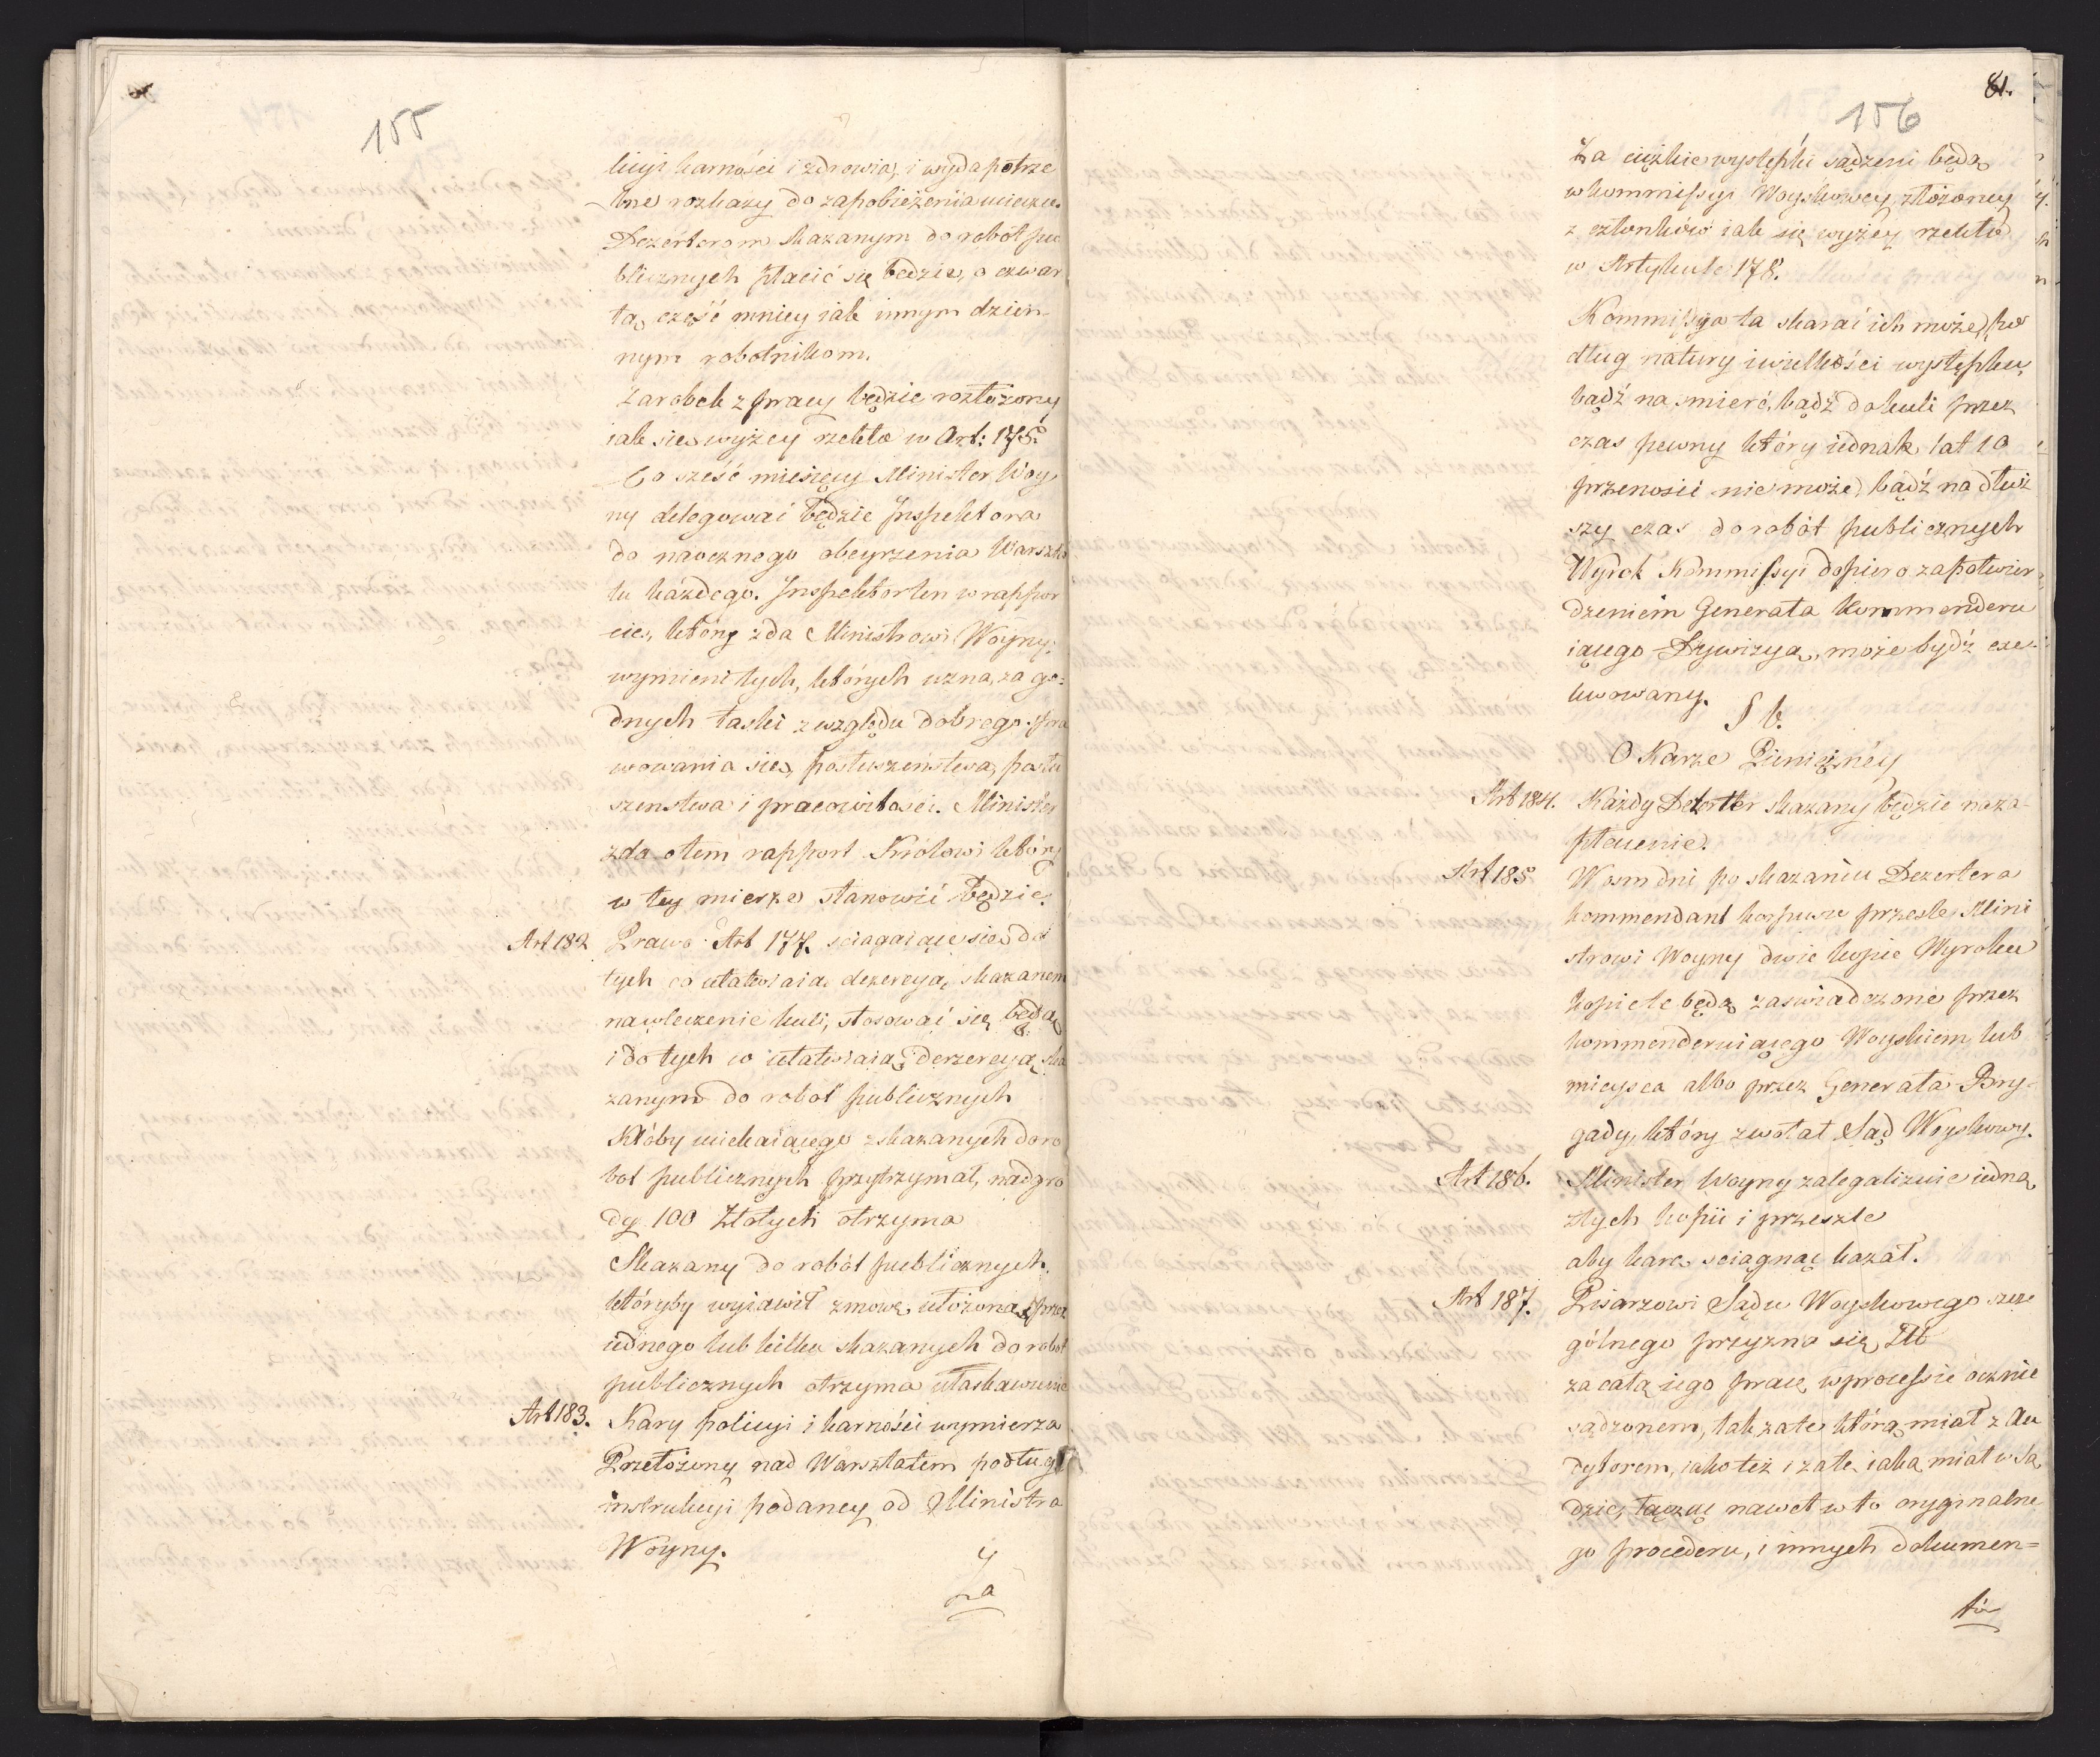 155
licyi karności i zdrowia, i wyda potrze
bne rozkazy do zapobieżeniia ucieczce.
Dezerterom skazanym do robót pu
blicznych płacić się będzie, o czwar
tą część mniey iak innym dzien-
nym robotnikom.
Zarobek z pracy będzie rozłożony
iak się wyżey rzekło w Art: 175.
Co sześć miesięcy Minister Woy
ny delegować będzie Inspektora
do naocznego obeyrzenia Warszta
tu każdego. Inspektor ten w rappor
cie, który zda Ministrowi Woyny,
wymieni tych, których uzna, za go=
dnych łaski z względu dobrego spra
wowania się, posłuszeństwa, posłu
szenstwa i pracowitości. Minister
zda o tem rapport Królowi który
w tey mierze stanowić będzie.
Art 182. Prawo Art 177. sciągaiące się do
tych co ułatwiaią dezercyą, skazanem
na wleczenie kuli, stosować się będą
i do tych co ułatwiaią derzercyą, ska
zanym do robot publicznych
Któby uciekaiącego z skazanych do ro
bot publicznych przytrzymał, nadgro
dy 100 Złotych otrzyma
Skazany do robót publicznych,
któryby wyiawił zmowę ułożoną przez
iednego lub kilku skazanych do robot
publicznych otrzyma ułaskawienie
Art 183. Kary policyi i karności wymierza
Przełożony nad Warsztatem podług
instrukcyi podaney od Ministra
Woyny.
Za
81.
156
Za ciężkie występki sądzeni będą
w kommissyi Woyskowey złożoney
z członków iak się wyżey rzekło
w Artykule 178.
Kommissya ta skarać ich może, po
dług natury i wielkości występku,
bądź na smierć, bądź do kuli przez
czas pewny który iednak lat 10
przenosić nie może, bądź na dłuż
szy czas do robót publicznych
Wyrok Kommissyi dopiero za potwier
dzeniem Generała kommenderu
iącego Dywizyą, może bydź exe-
kwowany.
§ V.
O Karze Pieniężney
Art 184. Każdy Dezerter skazany będzie na za-
płacenie.
Art 185. W osm dni po skazaniu Dezertera
kommendant korpusu przesle Mini
strowi Woyny dwie kopie Wyroku
kopie te będą zaswiadczone przez
kommenderuiącego Woyskiem lub
mieysca albo przez Generała Bry-
gady, który zwołał Sąd Woyskowy.
Art 186. Minister Woyny zalegalizuie iedną
z tych kopii i przeszle
aby karę sciągnąć kazał.
Art 187. Pisarzowi Sądu Woyskowego szcze
gólnego przyzna się
za całą iego pracę w processie ocznie
sądzonem, tak za tę którą miał z Au
dytorem, iako też i za tę iaką miał w Są
dzie, łącząc nawet w to oryginalne
go procederu, i innych dokumen=
tów